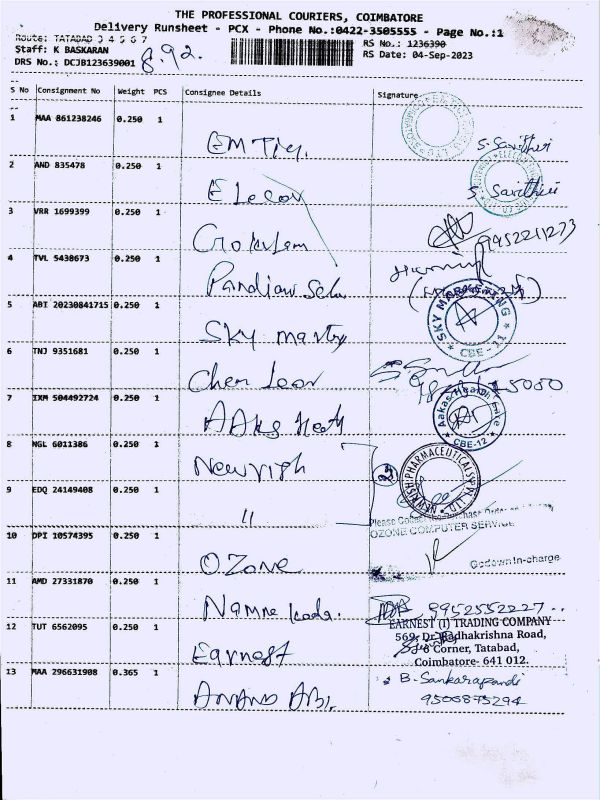 THE PROFESSIONAL COURIERS, COIMBATORE
Delivery Runsheet - PCX - Phone No.:0422-3505555 - Page No.:1
Route: TATABAD 3 4 5 6 7
Staff: K BASKARAN
DRS No.: DCJB123639001
8.92.
RS No.: 1236390
RS Date: 04-Sep-2023
S No Consignment No Weight PCS Consignee Details Signature
1 MAA 861238246 0.250 1 S. Savithiri
2 AND 835478 0.250 1 Elecon S Savithiri
3 VRR 1699399 0.250 1 Gokulam 9952211273
4 TVL 5438673 0.250 1
5 ABT 20230841715 0.250 1 Sky
SKY MARKETING CBE-11
6 TNJ 9351681 0.250 1
7 IXM 504492724 0.250 1 AAks Heath
Aakas Health Care CBE-12
8 NGL 6011386 0.250 1 Newrish
NEWRISH PHARMACEUTICALS P. LTD.
9 EDQ 24149408 0.250 1 "
10 DPI 10574395 0.250 1 Ozone
OZONE COMPUTER SERVICE
Godown In-charge
11 AMD 27331870 0.250 1 9952552227
12 TUT 6562095 0.250 1 Earnest
EARNEST (I) TRADING COMPANY
569, Dr. Radhakrishna Road,
Corner, Tatabad,
Coimbatore- 641 012.
13 MAA 296631908 0.365 1 ANAND ABI. B. Sankarapandi
9506875294